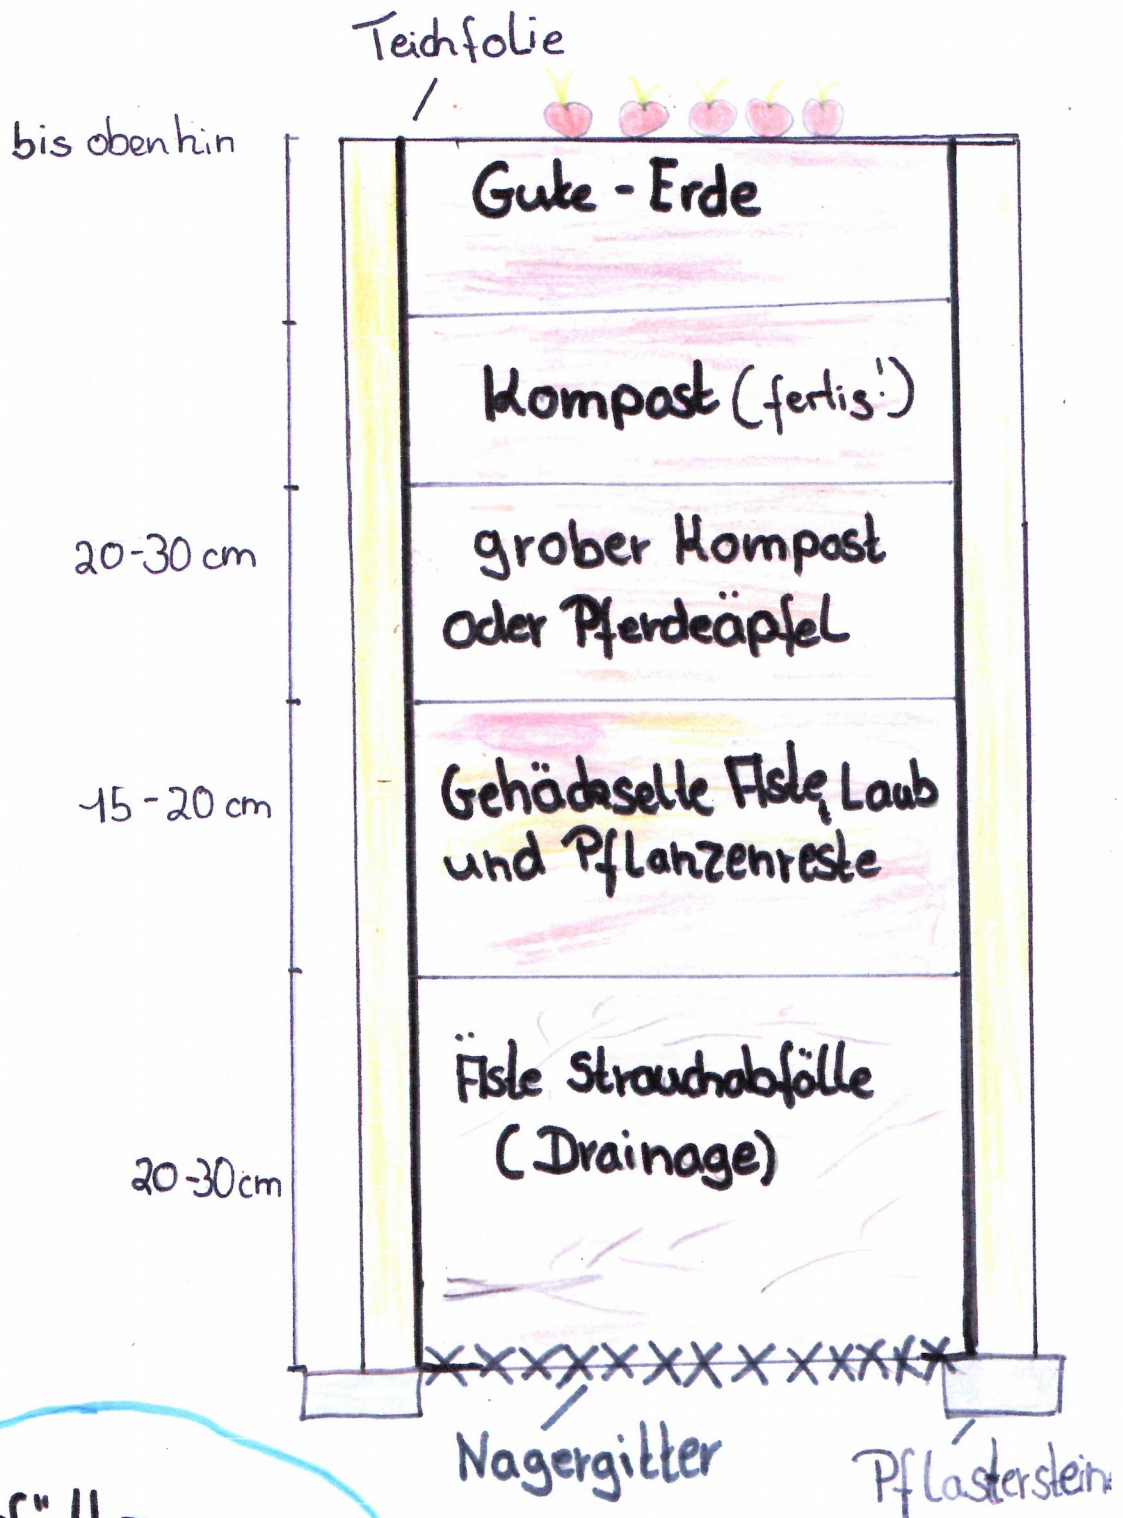 Teichfolie
bis obenhin
Gute - Erde
Kompost (fertig!)
20-30 cm
grober Kompost
oder Pferdeäpfel
15-20 cm
Gehäckselte Äste, Laub
und Pflanzenreste
Äste Strauchabfälle
(Drainage)
20-30 cm
Nagergitter
Pflasterstein